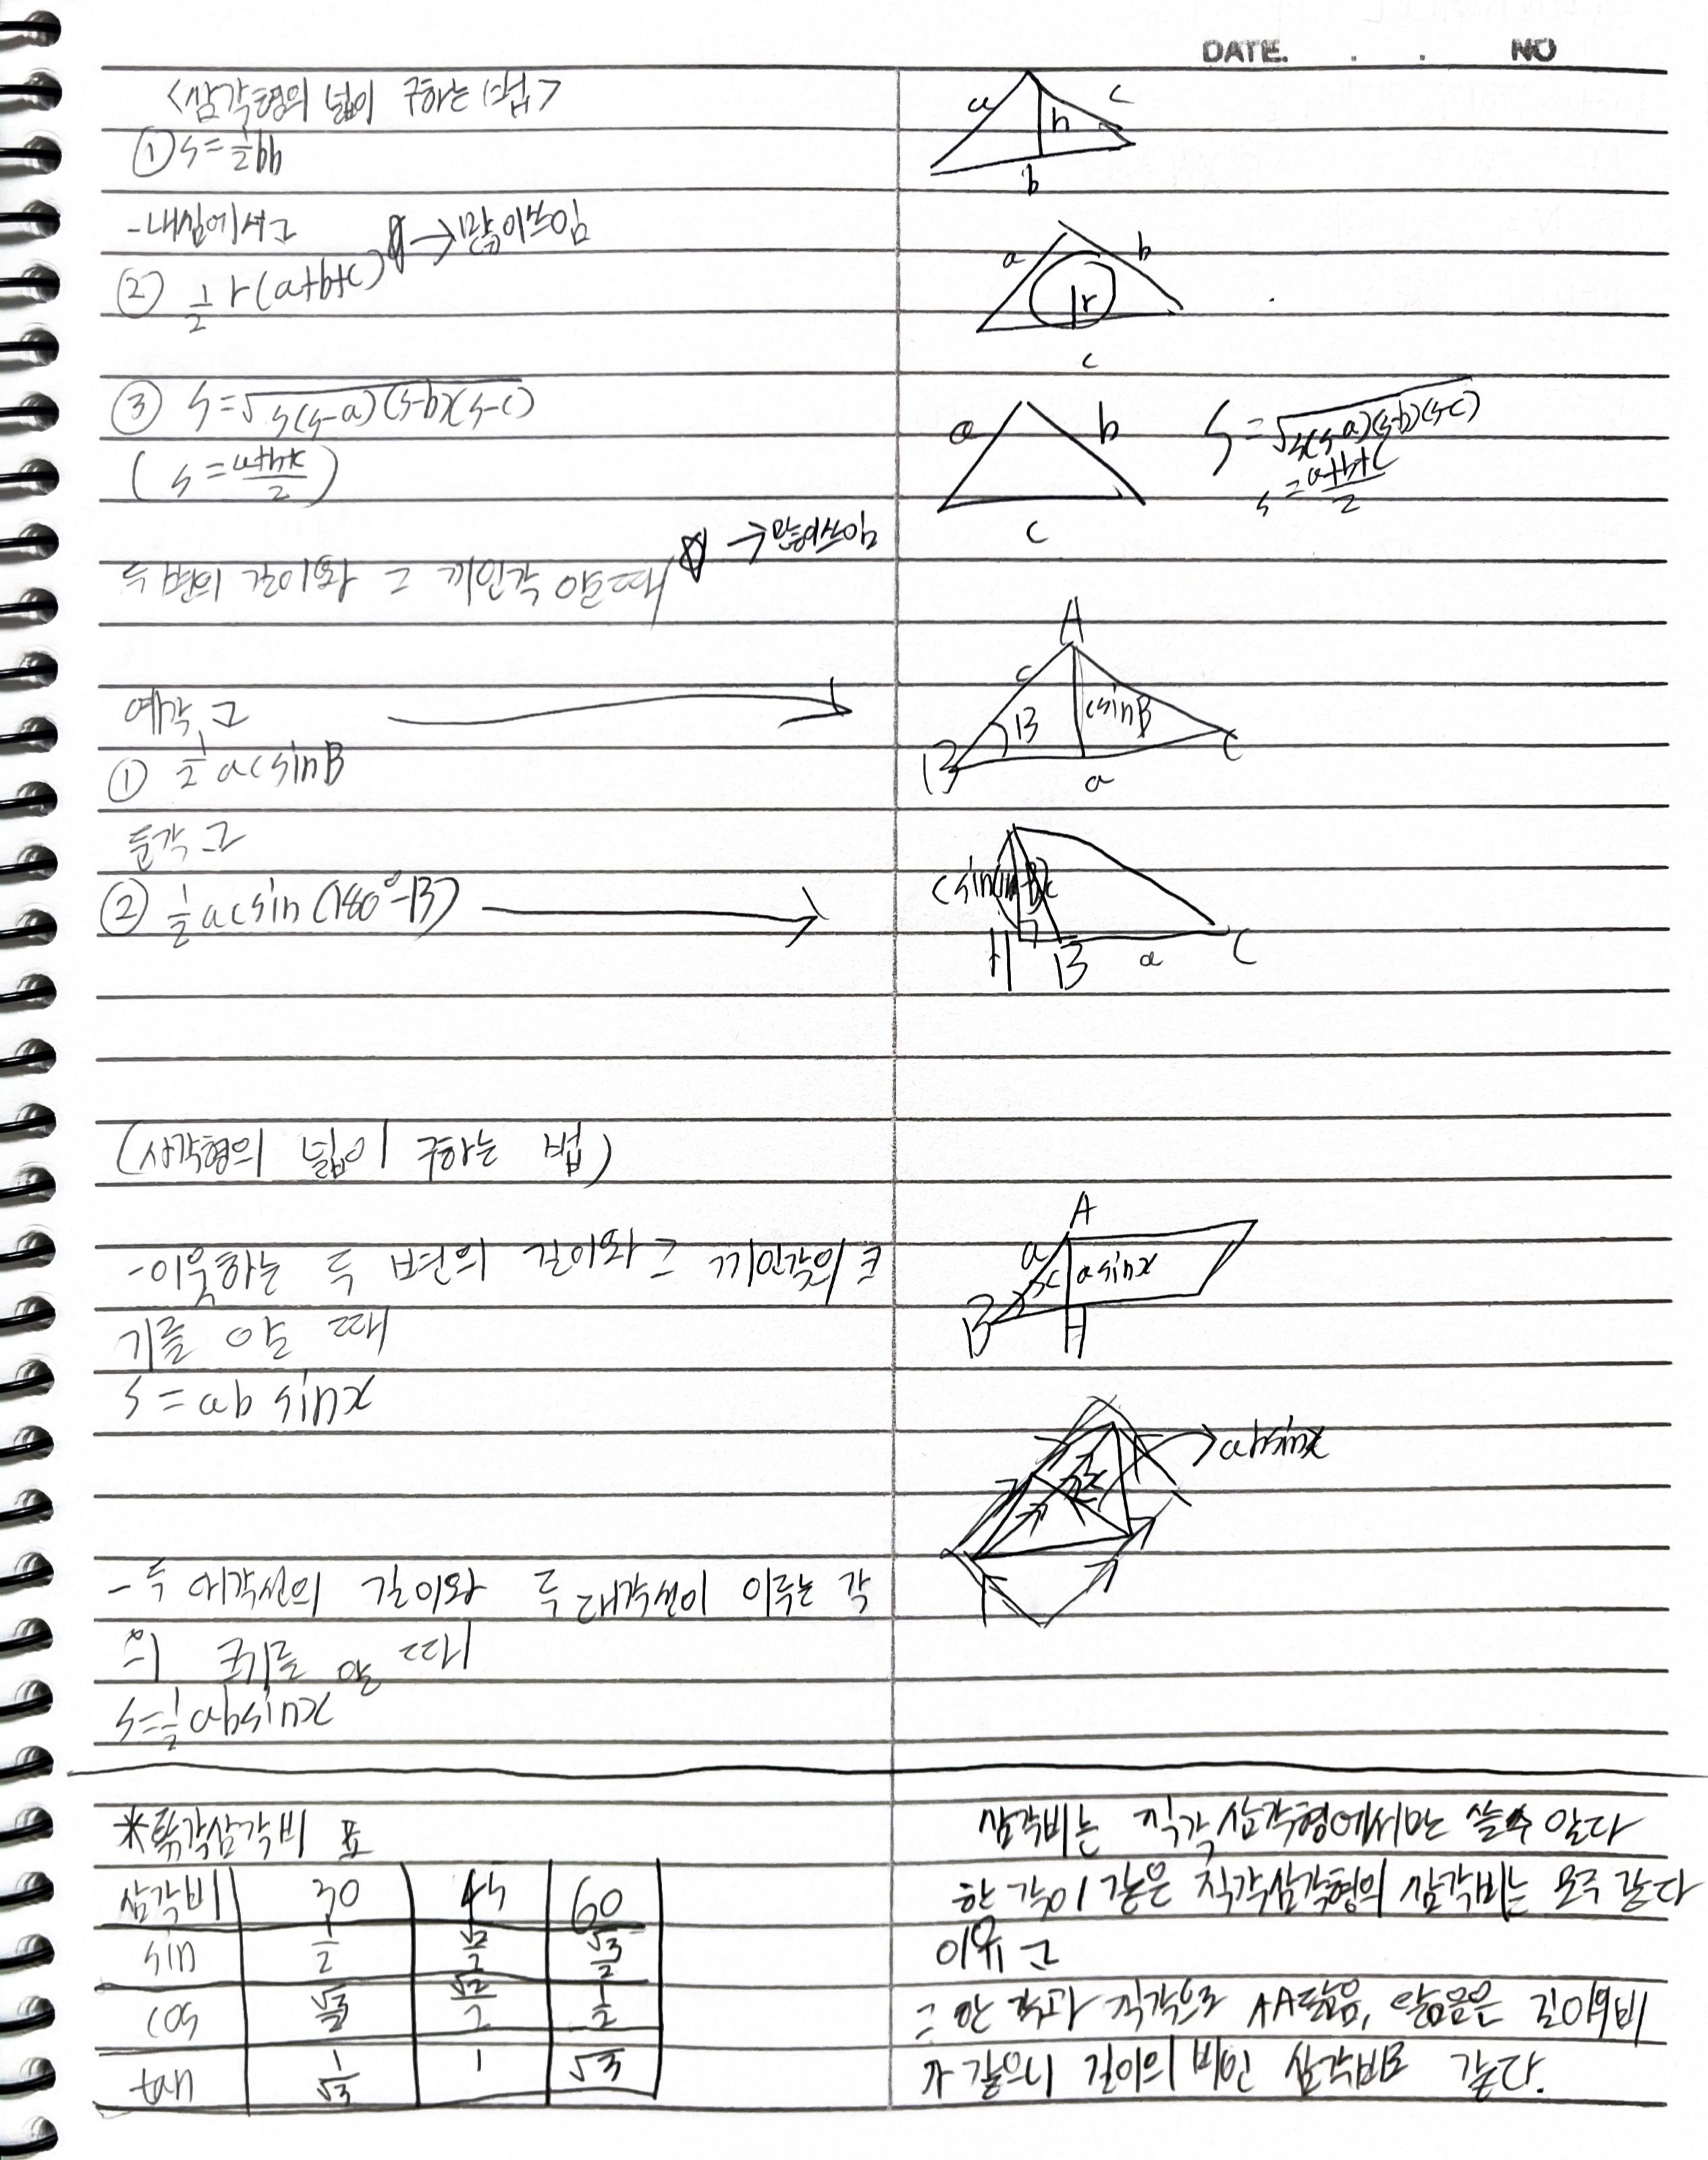 DATE. . . NO
<삼각형의 넓이 구하는 법>
① S=½bh
a c
h
b
-내심에서→
② ½ r(a+b+c) ☆→많이쓰임
a b
r
c
③ S=√s(s-a)(s-b)(s-c)
(s=(a+b+c)/2)
a b
c
S=√s(s-a)(s-b)(s-c)
s=(a+b+c)/2
두 변의 길이와 그 끼인각 알 때 ☆→많이쓰임
예각→
① ½acsinB
A
c
B csinB
B a C
둔각→
② ½acsin(180°-B)
H B a C
(사각형의 넓이 구하는 법)
-이웃하는 두 변의 길이와 그 끼인각의 크
기를 알 때
S=ab sinx
A
a
x asinx
B H
→absinx
-두 대각선의 길이와 두 대각선이 이루는 각
의 크기를 알 때
S=½absinx
*특각삼각비 표
삼각비 30 45 60
sin 1/2 √2/2 √3/2
cos √3/2 √2/2 1/2
tan 1/√3 1 √3
삼각비는 직각삼각형에서만 쓸수 있다
한 각이 같은 직각삼각형의 삼각비는 모두 같다
이유→
그 한 각과 직각으로 AA닮음, 닮음은 길이의비
가 같으니 길이의 비인 삼각비도 같다.